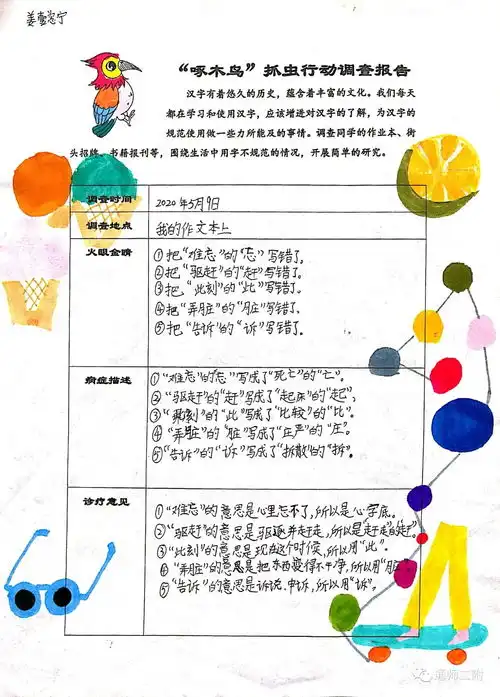 “啄木鸟”抓虫行动调查报告
汉字有着悠久的历史，蕴含着丰富的文化。我们每天
都在学习和使用汉字，应该增进对汉字的了解，为汉字的
规范使用做一些力所能及的事情。调查同学的作业本、街
头招牌、书籍报刊等，围绕生活中用字不规范的情况，开展简单的研究。
调查时间 2020年5月9日
调查地点 我的作文本上
火眼金睛 ①把“难忘”的“忘”写错了。
②把“驱赶”的“赶”写错了。
③把“此刻”的“此”写错了。
④把“弄脏”的“脏”写错了。
⑤把“告诉”的“诉”写错了。
病症描述 ①“难忘”的“忘”写成了“死亡”的“亡”。
②“驱赶”的“赶”写成了“起床”的“起”。
③“刻”的“此”写成了“比较”的“比”。
④“弄脏”的“脏”写成了“庄严”的“庄”。
⑤“告诉”的“诉”写成了“拆散”的“拆”。
诊疗意见 ①“难忘”的意思是心里忘不了，所以是心字底。
②“驱赶”的意思是驱逐并赶走，所以是“赶走”的“赶”。
③“此刻”的意思是现在这个时候，所以用“此”。
④“弄脏”的意思是把东西变得不干净，所以用“脏”。
⑤“告诉”的意思是诉说、申诉，所以用“诉”。
通师二附